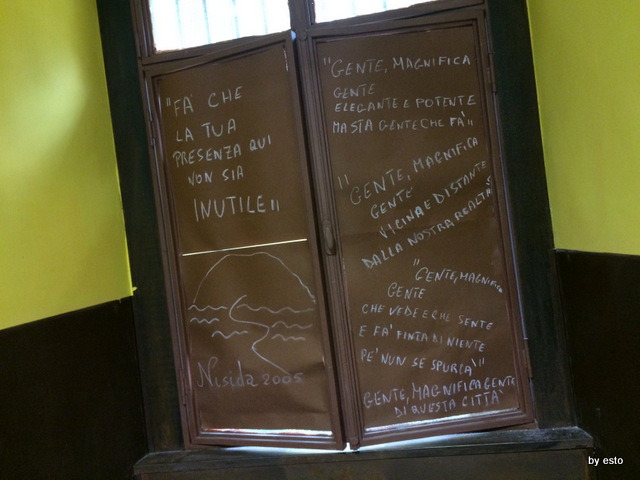 "FA' CHE
LA TUA
PRESENZA QUI
NON SIA
INUTILE"
Nisida 2005
"GENTE, MAGNIFICA
GENTE
ELEGANTE E POTENTE
MA STA GENTE CHE FA'"
"GENTE, MAGNIFICA
GENTE
VICINA E DISTANTE
DALLA NOSTRA REALTÀ"
"GENTE, MAGNIFICA
GENTE
CHE VEDE E CHE SENTE
E FA' FINTA DI NIENTE
PE' NUN SE SPURCÀ"
GENTE, MAGNIFICA GENTE
DI QUESTA CITTÀ
by esto